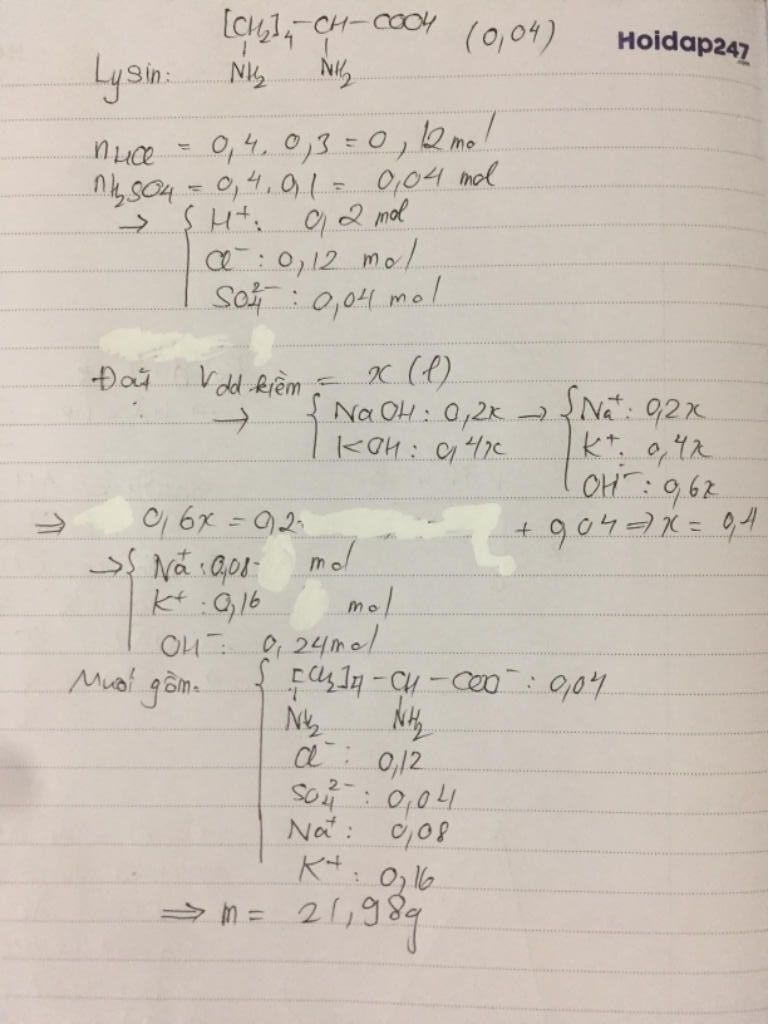 [CH2]4-CH-COOH (0,04)
Hoidap247.com
Lysin: NH2 NH2
nHCl = 0,4. 0,3 = 0,12mol
nH2SO4 = 0,4. 0,1 = 0,04 mol
→ { H+: 0,2 mol
Cl- : 0,12 mol
SO4^2- : 0,04 mol
Đặt Vdd kiềm = x (l)
→ { NaOH : 0,2x → { Na+: 0,2x
KOH : 0,4x K+: 0,4x
OH- : 0,6x
⇒ 0,6x = 0,2 + 0,04 ⇒ x = 0,4
→ { Na+ : 0,08 mol
K+ : 0,16 mol
OH- : 0,24mol
Muối gồm: { [CH2]4 - CH - COO- : 0,04
NH2 NH2
Cl- : 0,12
SO4^2- : 0,04
Na+ : 0,08
K+ : 0,16
⇒ m = 21,98g